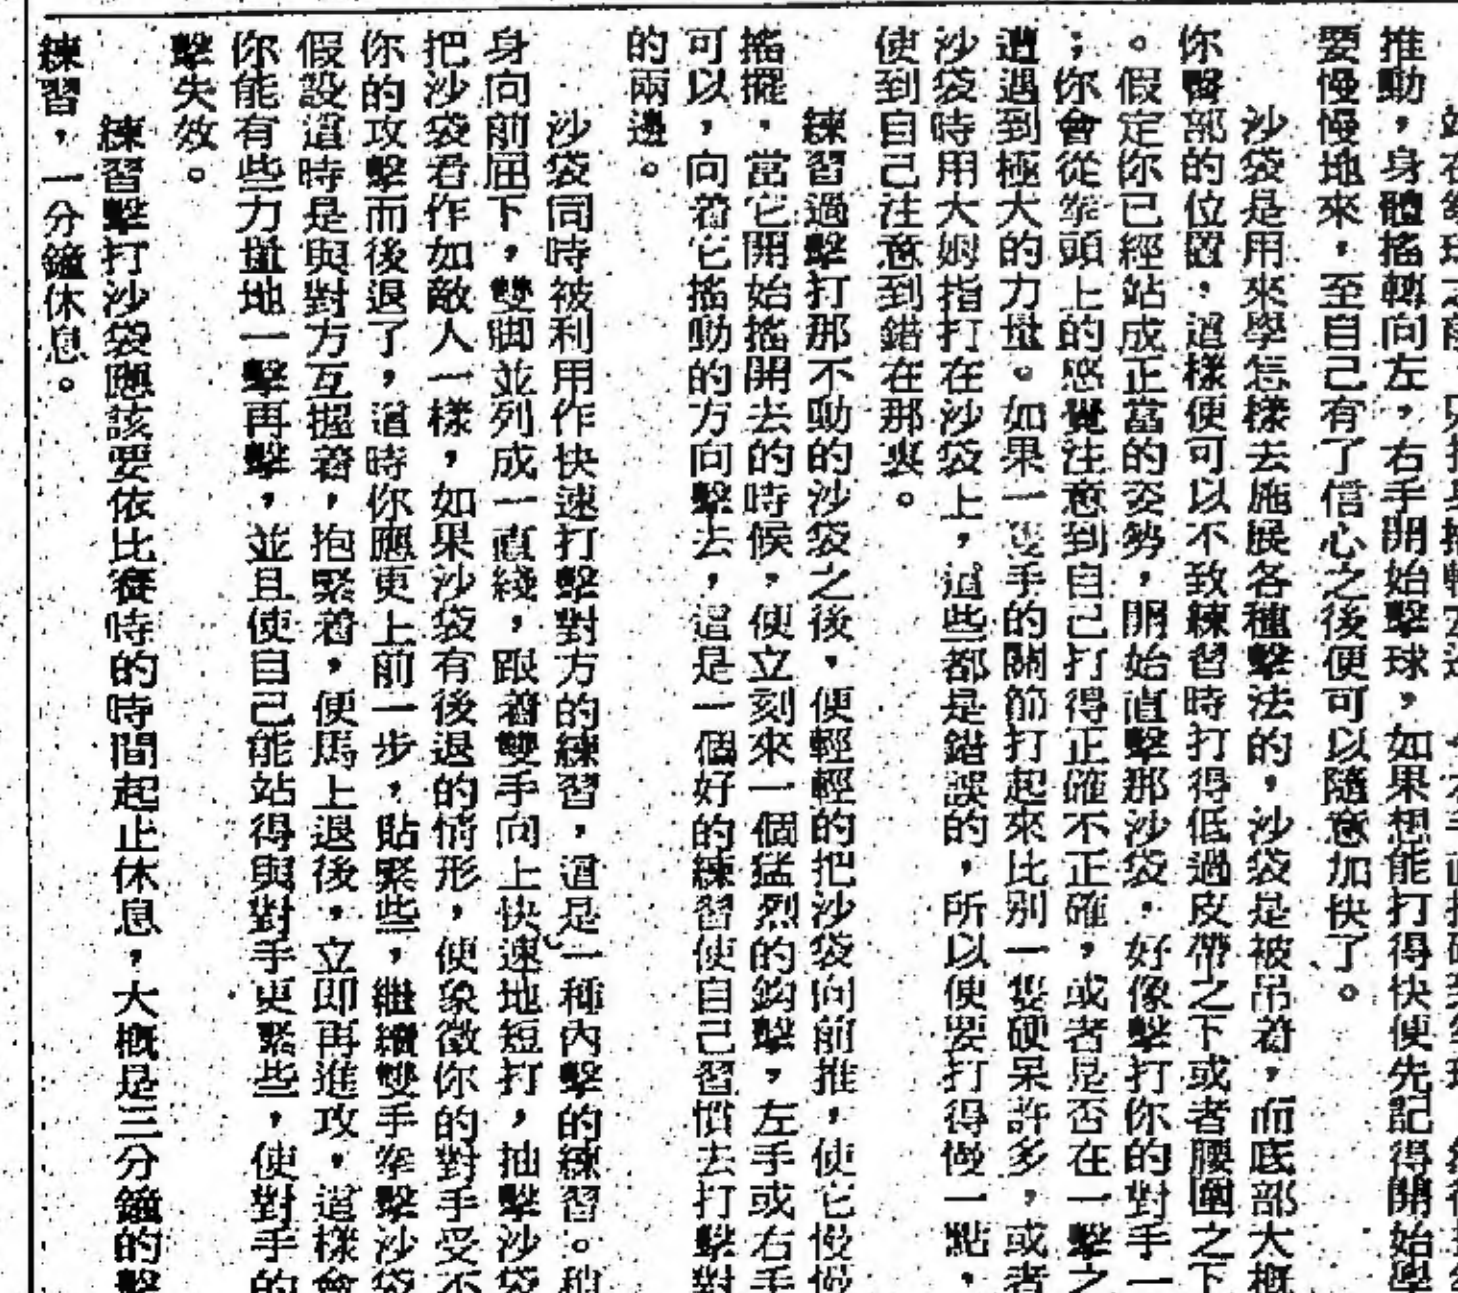 推動，身體搖轉向左，右手開始擊球，如果想能打得快便先記得開始學
要慢慢地來，至自己有了信心之後便可以隨意加快了。
沙袋是用來學怎樣去施展各種擊法的，沙袋是被吊着，而底部大概
你臀部的位置，這樣便可以不致練習時打得低過皮帶之下或者腰圍之下
。假定你已經站成正當的姿勢，開始直擊那沙袋，好像擊打你的對手一
；你會從拳頭上的感覺注意到自己打得正確不正確，或者是否在一擊之
遭遇到極大的力量。如果一隻手的關節打起來比别一隻硬呆許多，或者
沙袋時用大姆指打在沙袋上，這些都是錯誤的，所以便要打得慢一點，
使到自己注意到錯在那裏。
練習過擊打那不動的沙袋之後，便輕輕的把沙袋向前推，使它慢慢
搖擺，當它開始搖開去的時候，便立刻來一個猛烈的鈎擊，左手或右手
可以，向着它搖動的方向擊去，這是一個好的練習使自己習慣去打擊對
的兩邊。
沙袋同時被利用作快速打擊對方的練習，這是一種內擊的練習。稍
身向前屈下，雙脚並列成一直綫，跟着雙手向上快速地短打，抽擊沙袋
把沙袋看作如敵人一樣，如果沙袋有後退的情形，便象徵你的對手受不
你的攻擊而後退了，這時你應更上前一步，貼緊些，繼續雙手拳擊沙袋
假設這時是與對方互握着，抱緊着，便馬上退後，立即再進攻，這樣會
你能有些力量地一擊再擊，並且使自己能站得與對手更緊些，使對手的
擊失效。
練習擊打沙袋應該要依比賽時的時間起止休息，大概是三分鐘的擊
練習，一分鐘休息。